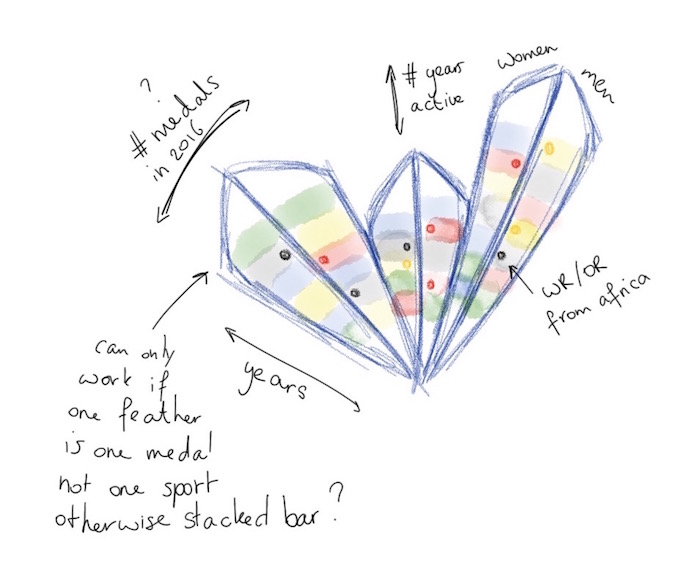 ?
# medals
in 2016
# years
active
women
men
WR/OR
from africa
years
can only
work if
one feather
is one medal
not one sport
otherwise stacked bar?